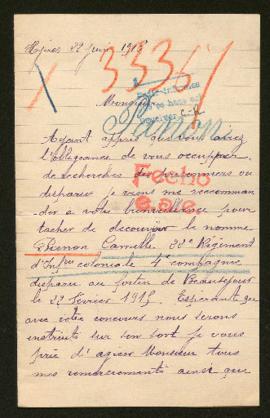 Hyères 22 juin 1915
3336
Monsieur
Ayant appris que vous aviez
l'obligeance de vous occuper
de recherches de prisonniers ou
disparus je viens me recomman
der a votre bienveillance pour
tacher de découvrir le nommé
Camille 38e Régiment
d'Infrie coloniale 4e compagnie
disparu au fortin de Beauséjour
le 22 Février 1915. Espérant que
avec votre concours nous serons
instruits sur son sort je vous
prie d'agréer Monsieur tous
mes remerciements ainsi que
Fecho